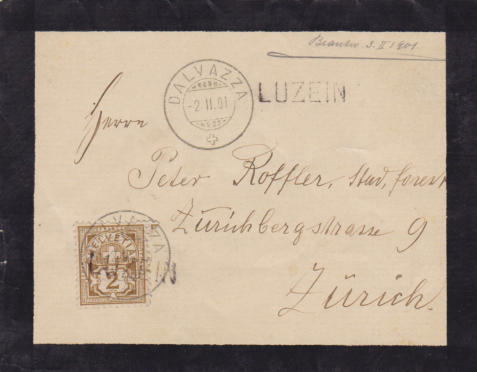 Beantw. 3. II 1901
DALVAZZA
-2.II.01
LUZEIN
Herrn
Peter Roffler, Stud. forest
Zürichbergstrasse 9
Zürich.
HELVETIA
2
IN